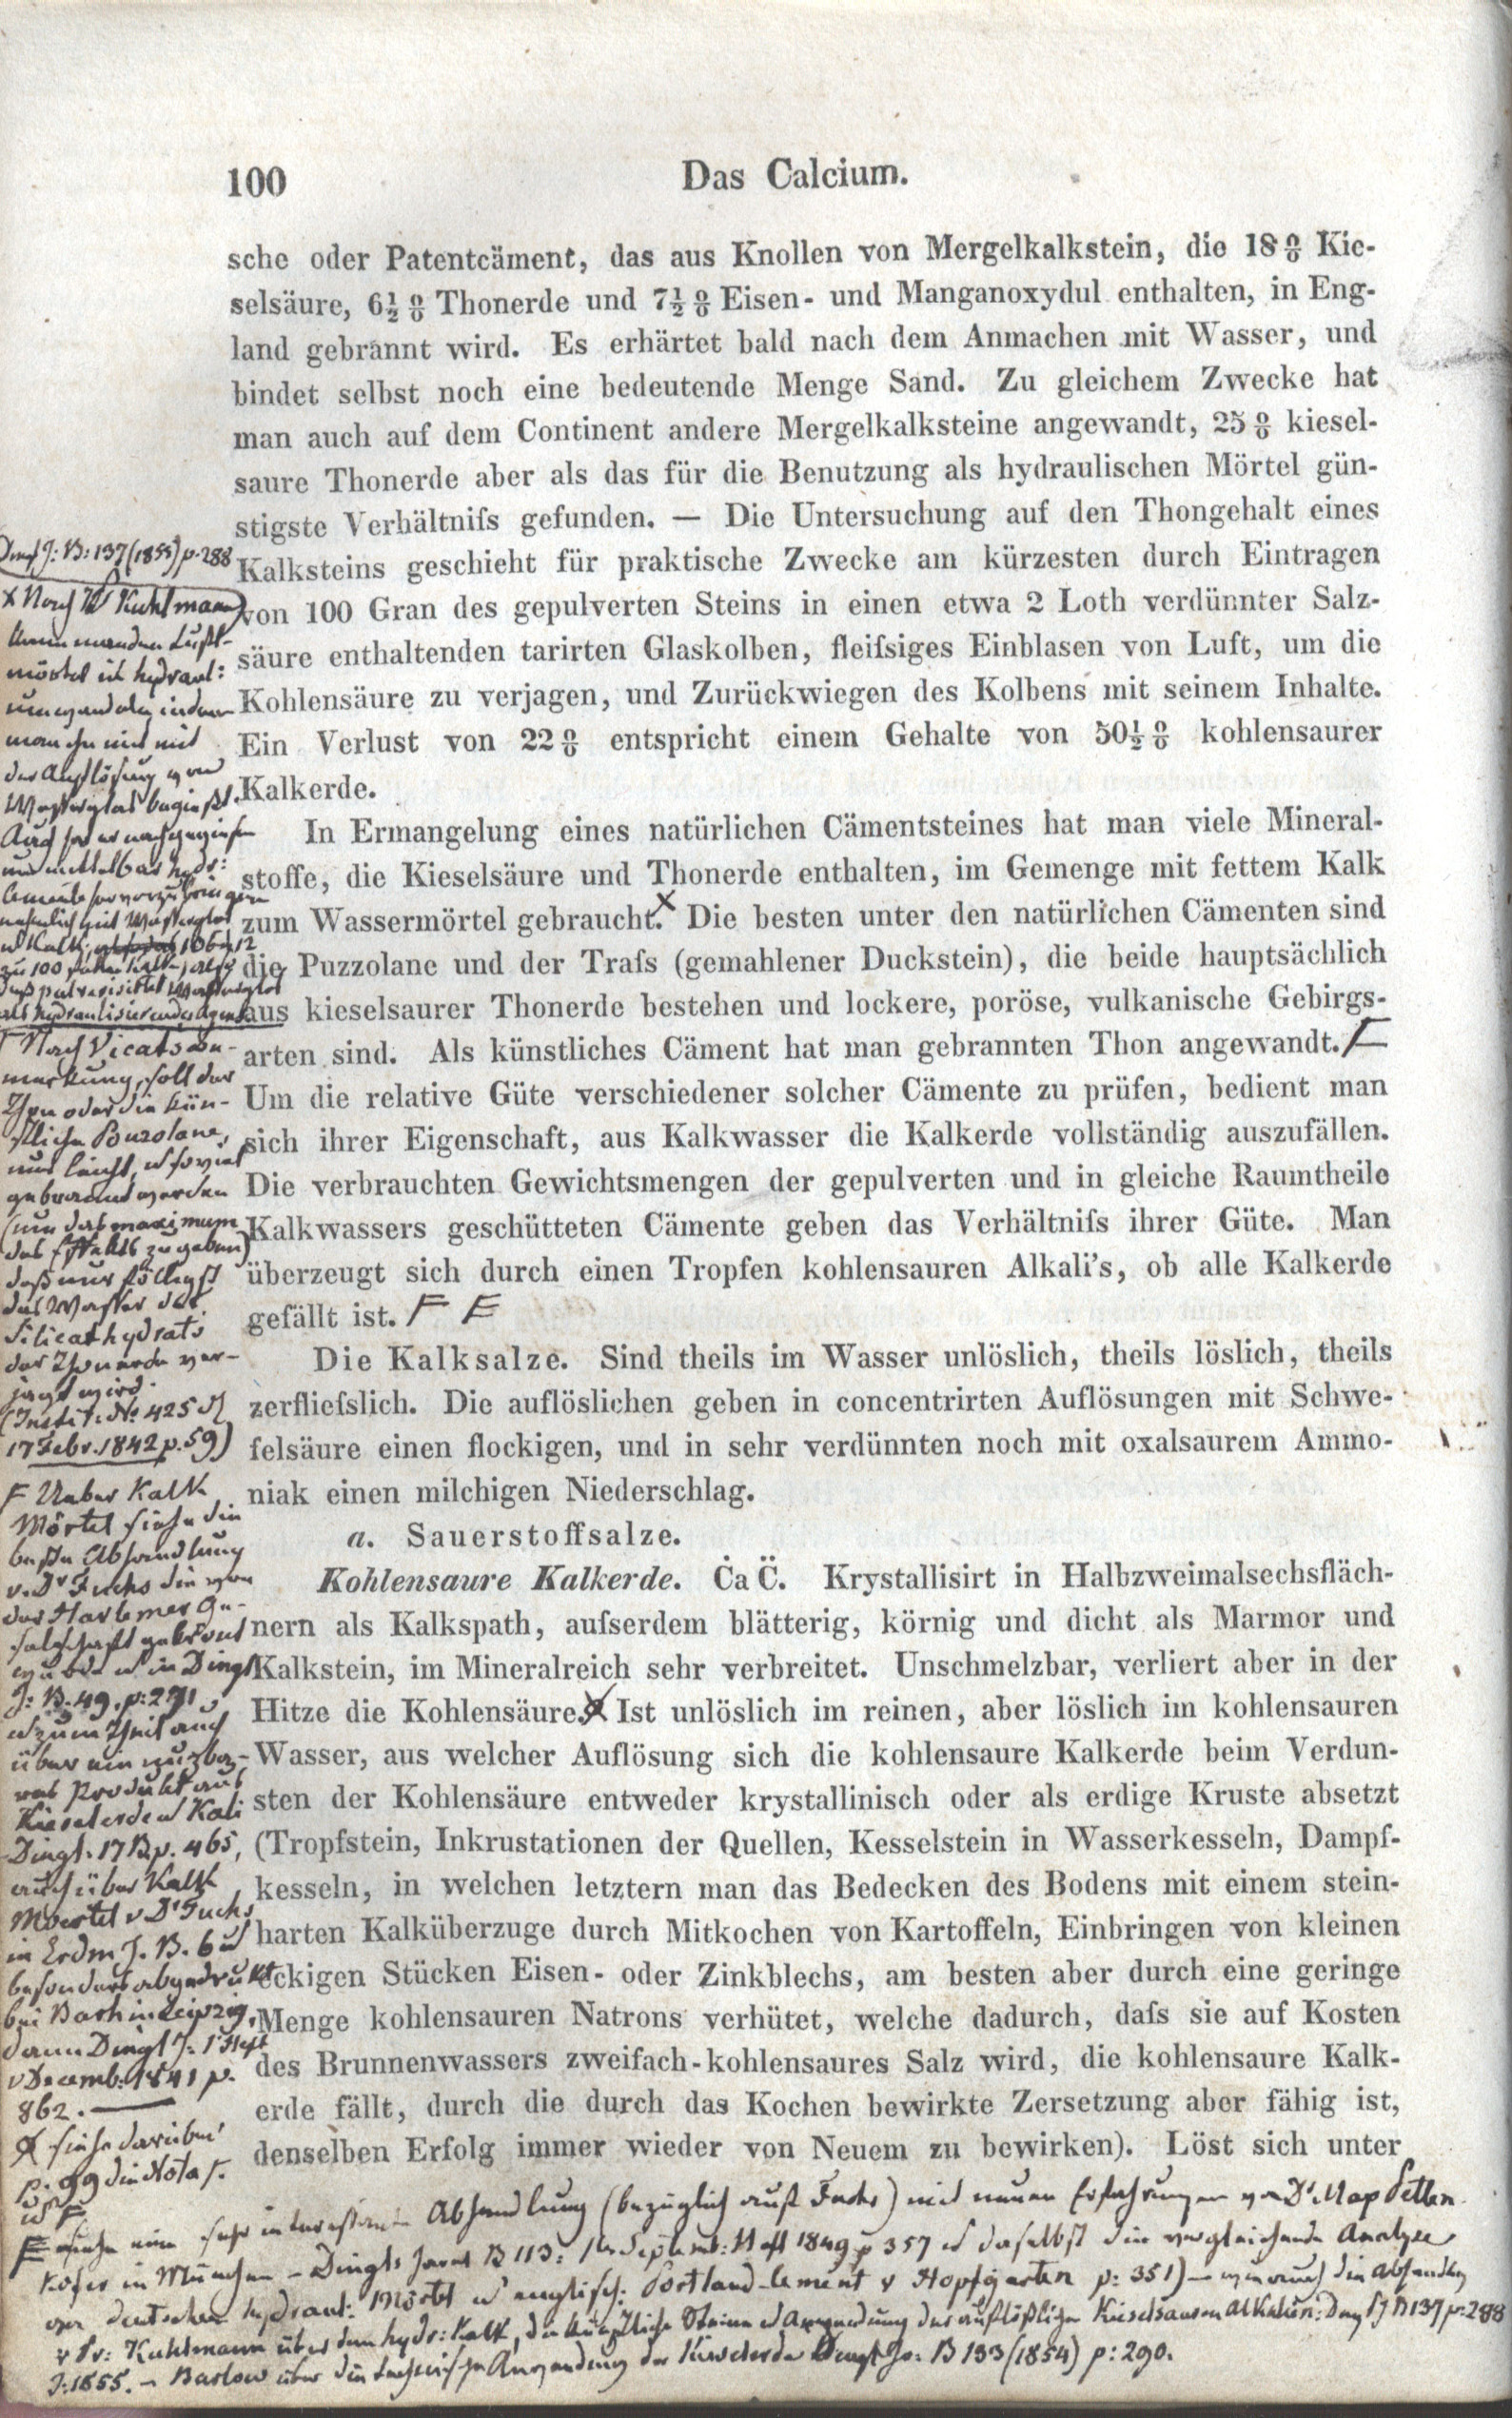 100
Das Calcium.
sche oder Patentcäment, das aus Knollen von Mergelkalkstein, die 18 0/0 Kie-
selsäure, 6½ 0/0 Thonerde und 7½ 0/0 Eisen- und Manganoxydul enthalten, in Eng-
land gebrannt wird. Es erhärtet bald nach dem Anmachen mit Wasser, und
bindet selbst noch eine bedeutende Menge Sand. Zu gleichem Zwecke hat
man auch auf dem Continent andere Mergelkalksteine angewandt, 25 0/0 kiesel-
saure Thonerde aber als das für die Benutzung als hydraulischen Mörtel gün-
stigste Verhältniſs gefunden. — Die Untersuchung auf den Thongehalt eines
Kalksteins geschieht für praktische Zwecke am kürzesten durch Eintragen
von 100 Gran des gepulverten Steins in einen etwa 2 Loth verdünnter Salz-
säure enthaltenden tarirten Glaskolben, fleiſsiges Einblasen von Luft, um die
Kohlensäure zu verjagen, und Zurückwiegen des Kolbens mit seinem Inhalte.
Ein Verlust von 22 0/0 entspricht einem Gehalte von 50½ 0/0 kohlensaurer
Kalkerde.
In Ermangelung eines natürlichen Cämentsteines hat man viele Mineral-
stoffe, die Kieselsäure und Thonerde enthalten, im Gemenge mit fettem Kalk
zum Wassermörtel gebraucht. x Die besten unter den natürlichen Cämenten sind
die Puzzolane und der Traſs (gemahlener Duckstein), die beide hauptsächlich
aus kieselsaurer Thonerde bestehen und lockere, poröse, vulkanische Gebirgs-
arten sind. Als künstliches Cäment hat man gebrannten Thon angewandt. F
Um die relative Güte verschiedener solcher Cämente zu prüfen, bedient man
sich ihrer Eigenschaft, aus Kalkwasser die Kalkerde vollständig auszufällen.
Die verbrauchten Gewichtsmengen der gepulverten und in gleiche Raumtheile
Kalkwassers geschütteten Cämente geben das Verhältniſs ihrer Güte. Man
überzeugt sich durch einen Tropfen kohlensauren Alkali's, ob alle Kalkerde
gefällt ist. F E
Die Kalksalze. Sind theils im Wasser unlöslich, theils löslich, theils
zerflieſslich. Die auflöslichen geben in concentrirten Auflösungen mit Schwe-
felsäure einen flockigen, und in sehr verdünnten noch mit oxalsaurem Ammo-
niak einen milchigen Niederschlag.
a. Sauerstoffsalze.
Kohlensaure Kalkerde. Ċa C̈. Krystallisirt in Halbzweimalsechsfläch-
nern als Kalkspath, auſserdem blätterig, körnig und dicht als Marmor und
Kalkstein, im Mineralreich sehr verbreitet. Unschmelzbar, verliert aber in der
Hitze die Kohlensäure. Ist unlöslich im reinen, aber löslich im kohlensauren
Wasser, aus welcher Auflösung sich die kohlensaure Kalkerde beim Verdun-
sten der Kohlensäure entweder krystallinisch oder als erdige Kruste absetzt
(Tropfstein, Inkrustationen der Quellen, Kesselstein in Wasserkesseln, Dampf-
kesseln, in welchen letztern man das Bedecken des Bodens mit einem stein-
harten Kalküberzuge durch Mitkochen von Kartoffeln, Einbringen von kleinen
eckigen Stücken Eisen- oder Zinkblechs, am besten aber durch eine geringe
Menge kohlensauren Natrons verhütet, welche dadurch, daſs sie auf Kosten
des Brunnenwassers zweifach-kohlensaures Salz wird, die kohlensaure Kalk-
erde fällt, durch die durch das Kochen bewirkte Zersetzung aber fähig ist,
denselben Erfolg immer wieder von Neuem zu bewirken). Löst sich unter
J: B: 137 (1855) p. 288
x Nach Kuhlmann
mörtel in hydraul:
umwandeln indem
man ihn nur mit
der Auflösung von
Wasserglas begießt.
nehmlich mit Wasserglas
als hydraulisirendes Agens
F Nach Vicats Be-
merkung, soll der
Thon oder die kün-
stliche Pouzolane,
nur leicht, u soviel
gebrannt werden
(um das maximum
des Effekts zu geben)
daß nur
das Wasser des
Silicathydrats
der Thonerde ver-
jagt wird.
(Instit. No 425
17 Febr. 1842 p. 59)
F Ueber Kalk
Mörtel siehe die
beste Abhandlung
v. Dr Fuchs die von
der Harlemer Ge-
sellschaft gekrönt
wurde u in Dingl
J: B. 49. p: 271
u zum Theil auch
über ein nuzba-
res Produkt aus
Kieselerde u Kali
Dingl. 17 B. p. 465,
auch über Kalk
Moertel v Dr Fuchs
in Erdm J. B. 6 u
besonders abgedrukt
bei Barth in Leipzig,
dann Dingl J: 1 Heft
v Decemb: 1841 p.
862.
siehe darüber
p. 99 die Nota
u F
siehe eine sehr interessante Abhandlung (bezüglich auf Fuchs) mit neuen Erfahrungen von Dr Max Petten-
kofer in München – Dingls Jornal B 113: 1tes Septemb: Heft 1849 p 357 u daselbst die vergleichende Analyse
von deutschen hydraul: Mörtel u englisch: Portland-Cement v Hopfgarten p: 351) – auch die Abhandlg
v Pr: Kuhlmann über den hydr: Kalk, die künstliche Steine u Anwendung der auflößlichen Kieselsauren Alkalien: J B 137 p: 288
J: 1855. – Barlow über die technische Anwendung der Kieselerde Dingl Jo: B 133 (1854) p: 290.